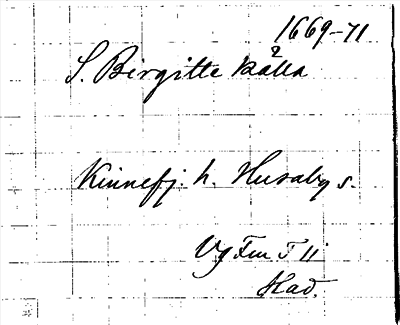 1669-71
S. Birgitte källa
Kinnefj. h. Husaby s.
Vg Fm I ii
Had.